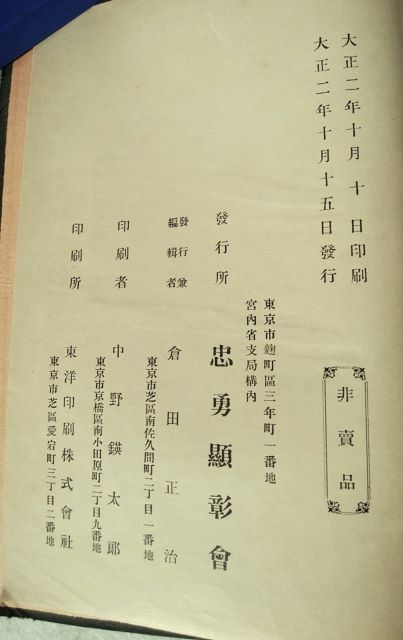 大正二年十月十日印刷
大正二年十月十五日發行
非賣品
東京市麴町區三年町一番地
宮內省支局構內
發行所 忠勇顯彰會
發行兼
編輯者
倉田正治
東京市芝區南佐久間町二丁目一番地
印刷者 中野鍈太郎
東京市京橋區南小田原町二丁目九番地
印刷所 東洋印刷株式會社
東京市芝區愛宕町三丁目二番地